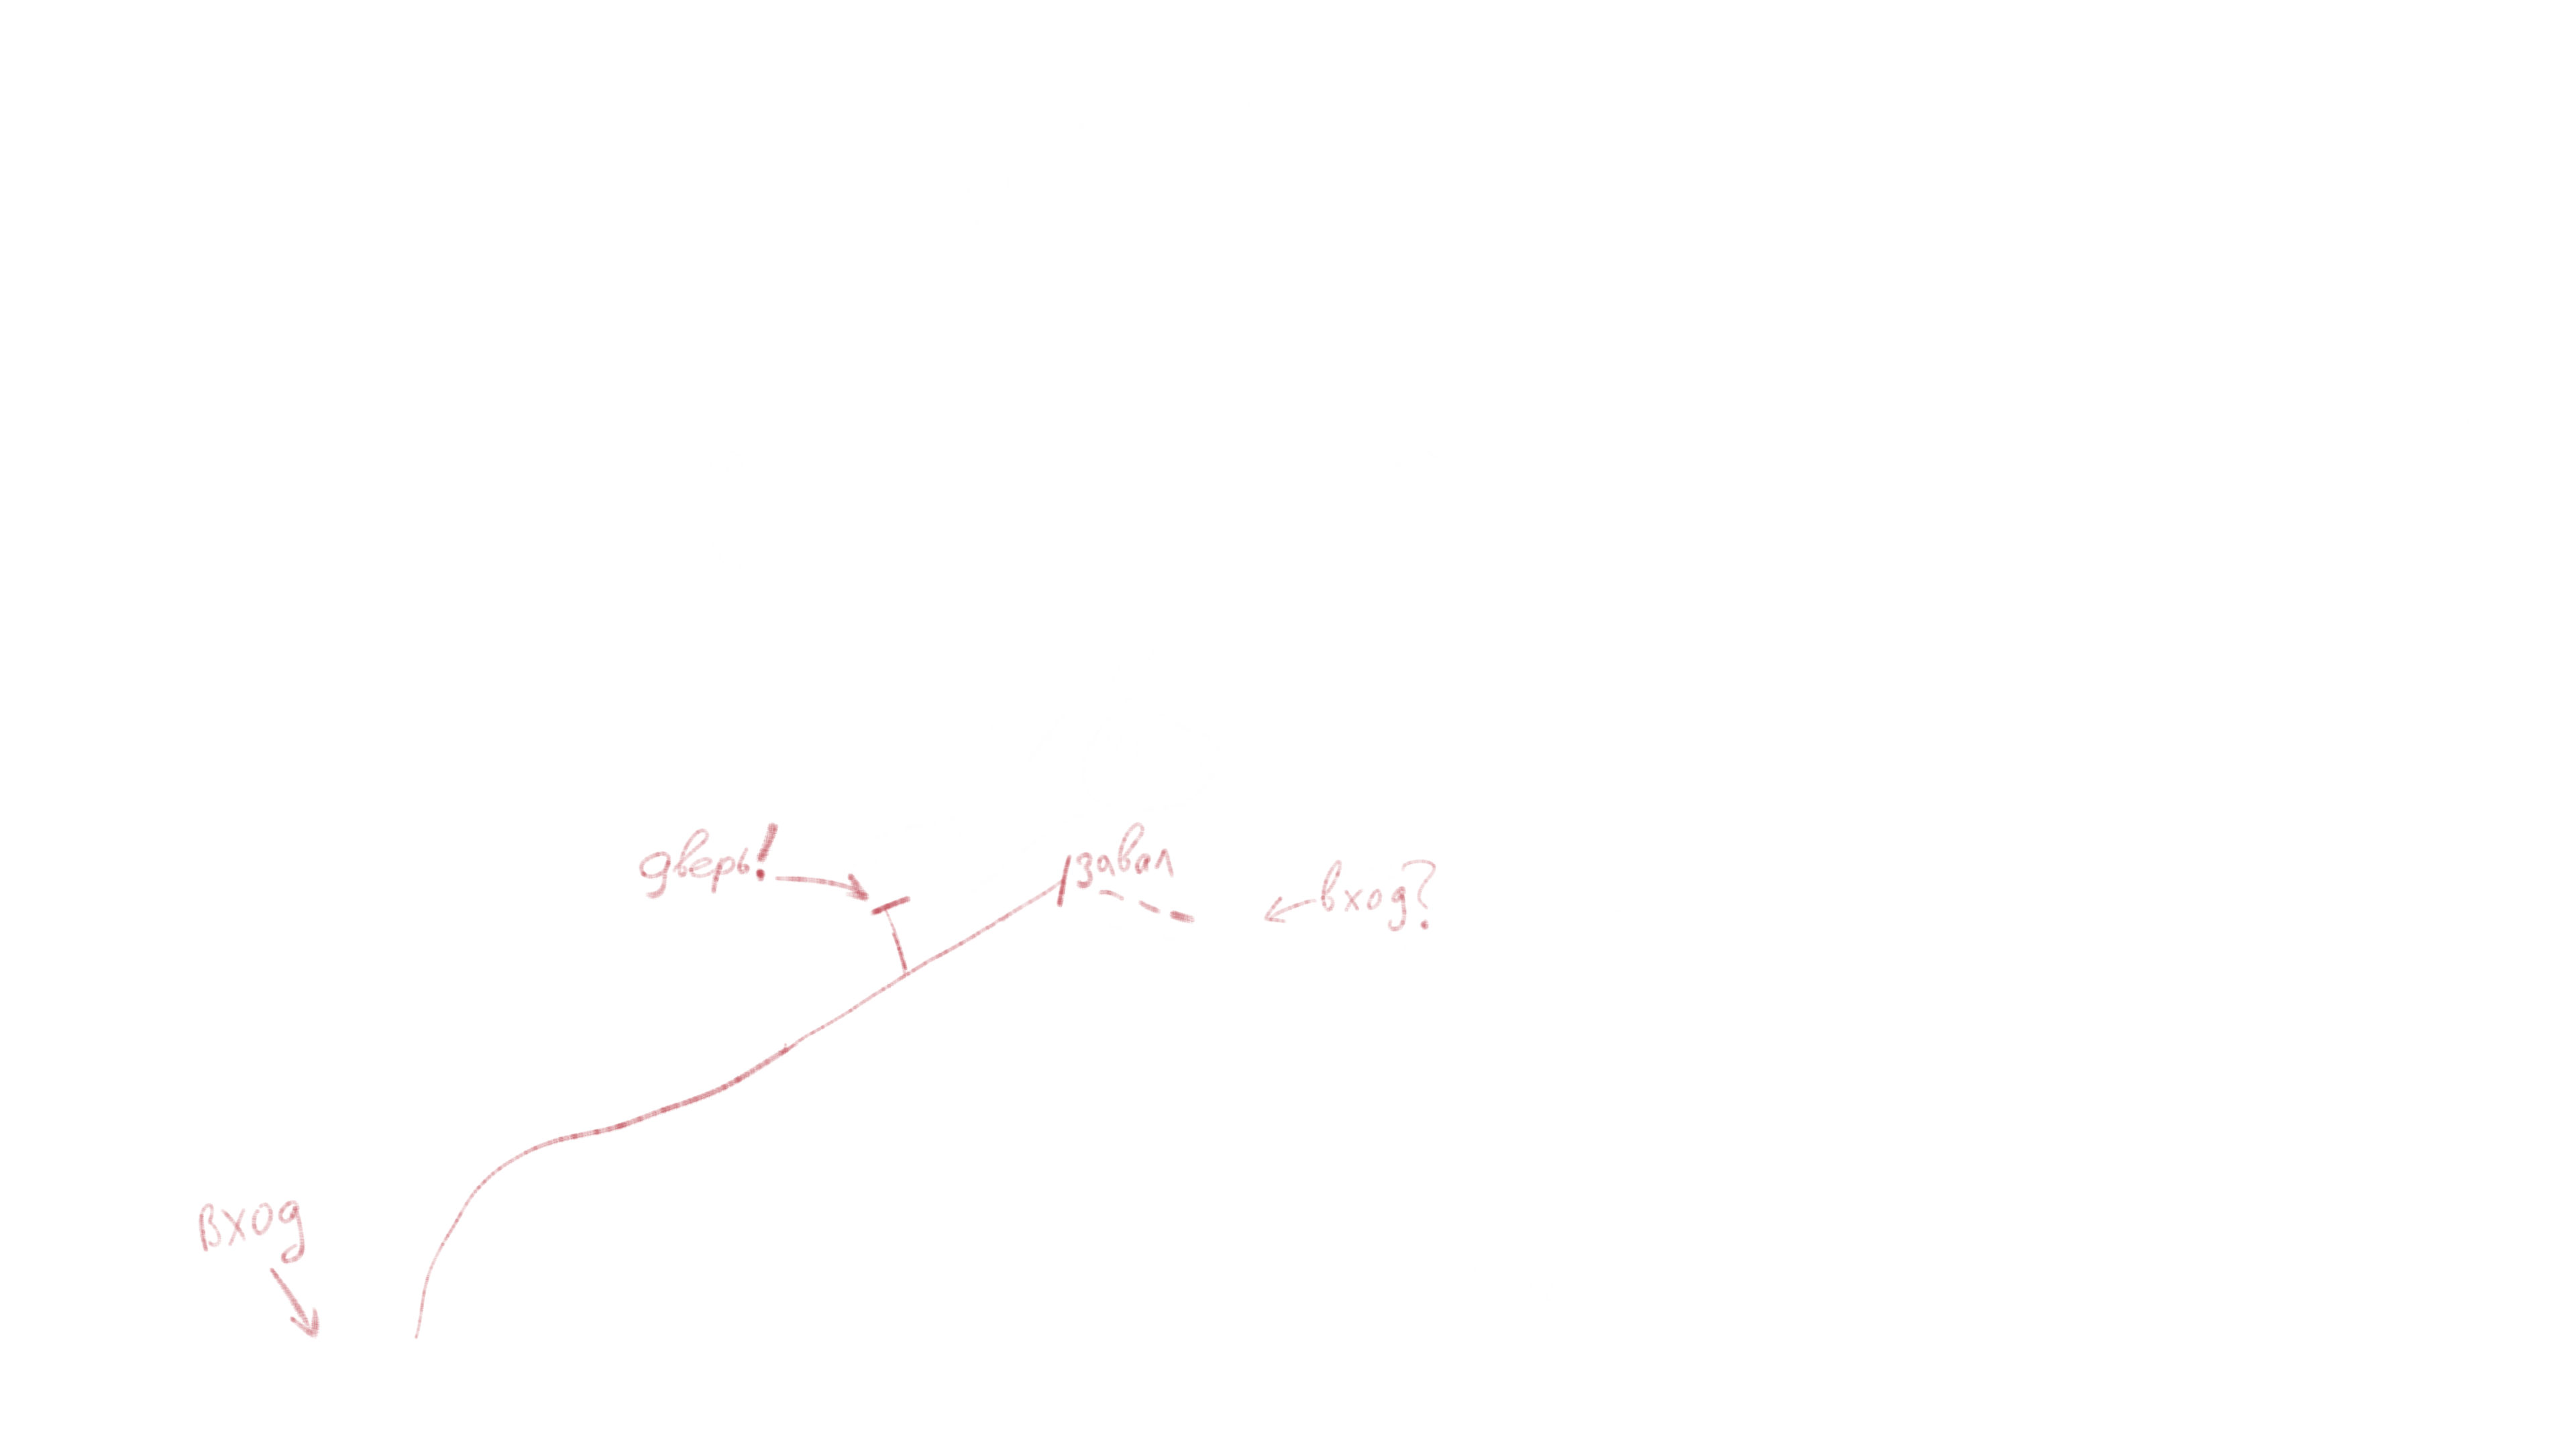 дверь!
завал
вход?
вход